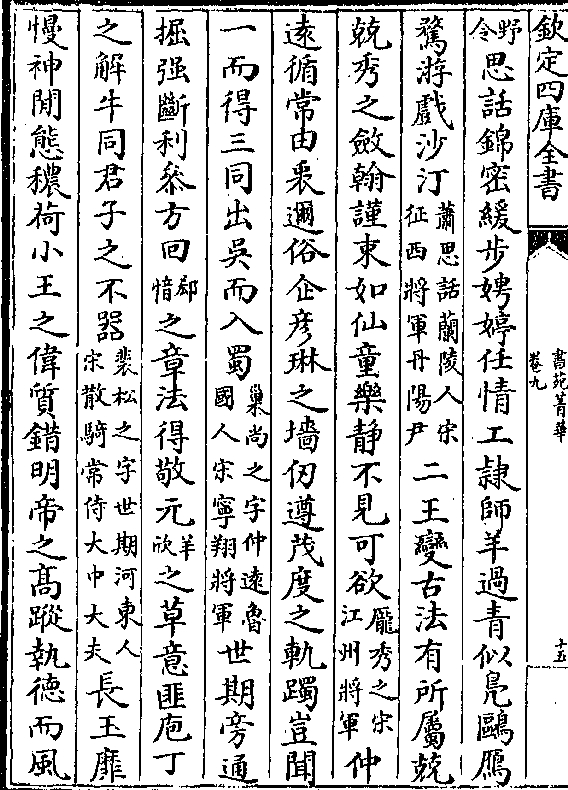 欽定四庫全書
書苑菁華
卷九
十五
野令思話錦密緩步娉婷任情工隷師羊過青似鳬鷗鴈
鶩游戲沙汀蕭思話蘭陵人宋征西將軍丹陽尹二王變古法有所屬兢
兢秀之斂翰謹束如仙童樂靜不見可欲龐秀之宋江州將軍仲
逺循常由衷邇俗企彦琳之墻仭遵茂度之軌躅豈聞
一而得三同出吳而入蜀巢尚之字仲逺魯國人宋寧翔將軍世期旁通
掘强斷利叅方回郄愔之章法得敬元羊欣之草意匪庖丁
之解牛同君子之不器裴松之字世期河東人宋散騎常侍大中大夫長玉靡
慢神閒態穠荷小王之偉質錯明帝之髙蹤執德而風